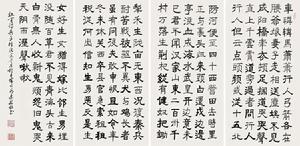 車轔轔馬蕭蕭行人弓箭各在
腰耶孃妻子走相送塵埃不見
咸陽橋牽衣頓足攔道哭哭聲
直上干雲霄道旁過者問行人
行人但云點行頻或從十五北
防河便至四十西營田去時里
正與裹頭歸來頭白還戍邊邊
庭流血成海水武皇開邊意未
已君不聞漢家山東二百州千
村萬落生荊杞縱有健婦把鋤
犁禾生隴畝無東西況復秦兵
耐苦戰被驅不異犬與雞長者
雖有問役夫敢申恨且如今年
冬未休關西卒縣官急索租租
稅從何出信知生男惡反是生
女好生女猶得嫁比鄰生男埋
沒隨百草君不見青海頭古來
白骨無人收新鬼煩冤舊鬼哭
天陰雨濕聲啾啾